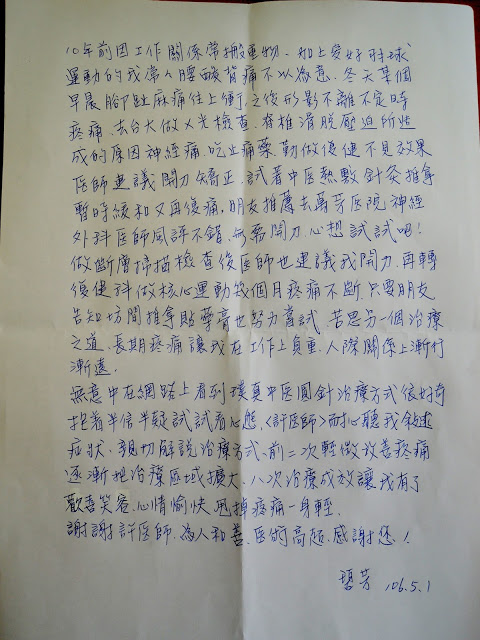 10年前因工作關係常搬重物、加上愛好羽球
運動的我常人腰酸背痛不以為意.冬天某個
早晨腳趾麻痛往上衝,之後形影不離不定時
疼痛.去台大做X光檢查.脊椎滑脫壓迫所造
成的原因神經痛.吃止痛藥.勤做復健不見效果
医師建議開刀矯正.試著中医熱敷針灸推拿
暫時緩和又再復痛.明友推薦去萬芳医院神經
外科医師風評不錯.無需開刀心想試試吧!
做斷層掃描檢查後医師也建議我開刀.再轉
復健科做核心運動幾個月疼痛不斷.只要朋友
告知坊間推拿貼藥膏也努力嘗試.苦思另一個治療
之道.長期疼痛讓我在工作上負重.人際關係上漸行
漸遠.
無意中在網路上看到璞真中医圓針治療方式很好奇
抱著半信半疑試試看心態,〈許医師〉耐心聽我敘述
症狀.親切解說治療方式、前二次輕微改善疼痛
逐漸把治療區域擴大.八次治療成效讓我有了
歡喜笑容.心情愉快甩掉疼痛一身輕.
謝謝許医師.為人和善.医術高超.感謝您!
碧芳 106.5.1